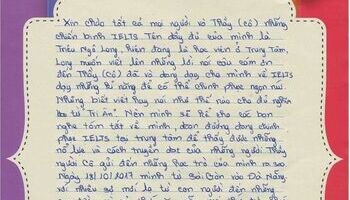 Xin chào tất cả mọi người và Thầy (cô) những
chiến binh IELTS. Tên đầy đủ của mình là
Triệu Ngô Long, hiện đang là học viên ở Trung Tâm,
Long muốn viết lên những lời nói câu cảm ơn
đến Thầy (Cô) đã và đang dạy cho mình về IELTS
dạy những kĩ năng để có thể chinh phục ngọn núi.
Những biết viết hay nói như thế nào cho đủ nghĩa
từ "Tri Ân". Nên mình sẽ kể cho các bạn
nghe tóm tắt về mình đoạn đường đang chinh
phục IELTS tại trung tâm để thấy được những
nổ lực và cách truyền đạt của những người Thầy
người Cô gửi đến những học trò của mình
Ngày 18/10/2017 mình từ Sài Gòn vào Đà Nẵng
với nhiều sự mới lạ từ con người đến những